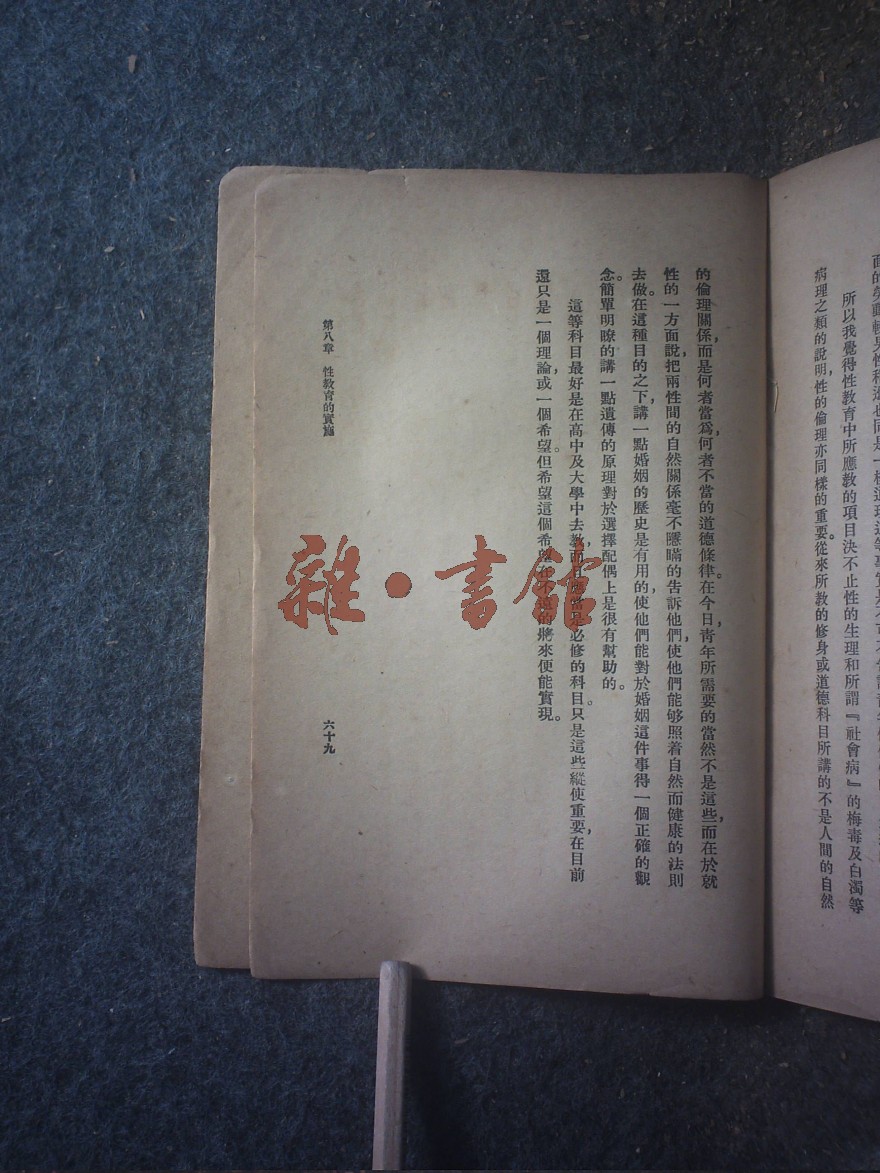 所以我覺得性教育中所應教的項目決不止性的生理和所謂『社會病』的梅毒及白濁等
病理之類的說明，性的倫理亦同樣的重要。從來所教的修身或道德科目所講的不是人間的自然
的倫理關係，而是何者當爲何者不當的道德條律。在今日，青年所需要的當然不是這些，而在於就
性的一方面說，把兩性間的自然關係毫不隱瞞的告訴他們，使他們能够照着自然而健康的法則
去做。在這種目的之下，講一點婚姻的歷史是有用的，使他們能對於婚姻這件事得一個正確的觀
念。簡單明瞭的講一點遺傳的原理對於選擇配偶上是很有幫助的。
這等科目最好是在高中及大學中去教，而且應當是必修的科目。只是這些縱使重要，在目前
還只是一個理論，或一個希望。但希望這個希望在不遠的將來便能實現。
第八章 性教育的實施
六十九
雜·書館